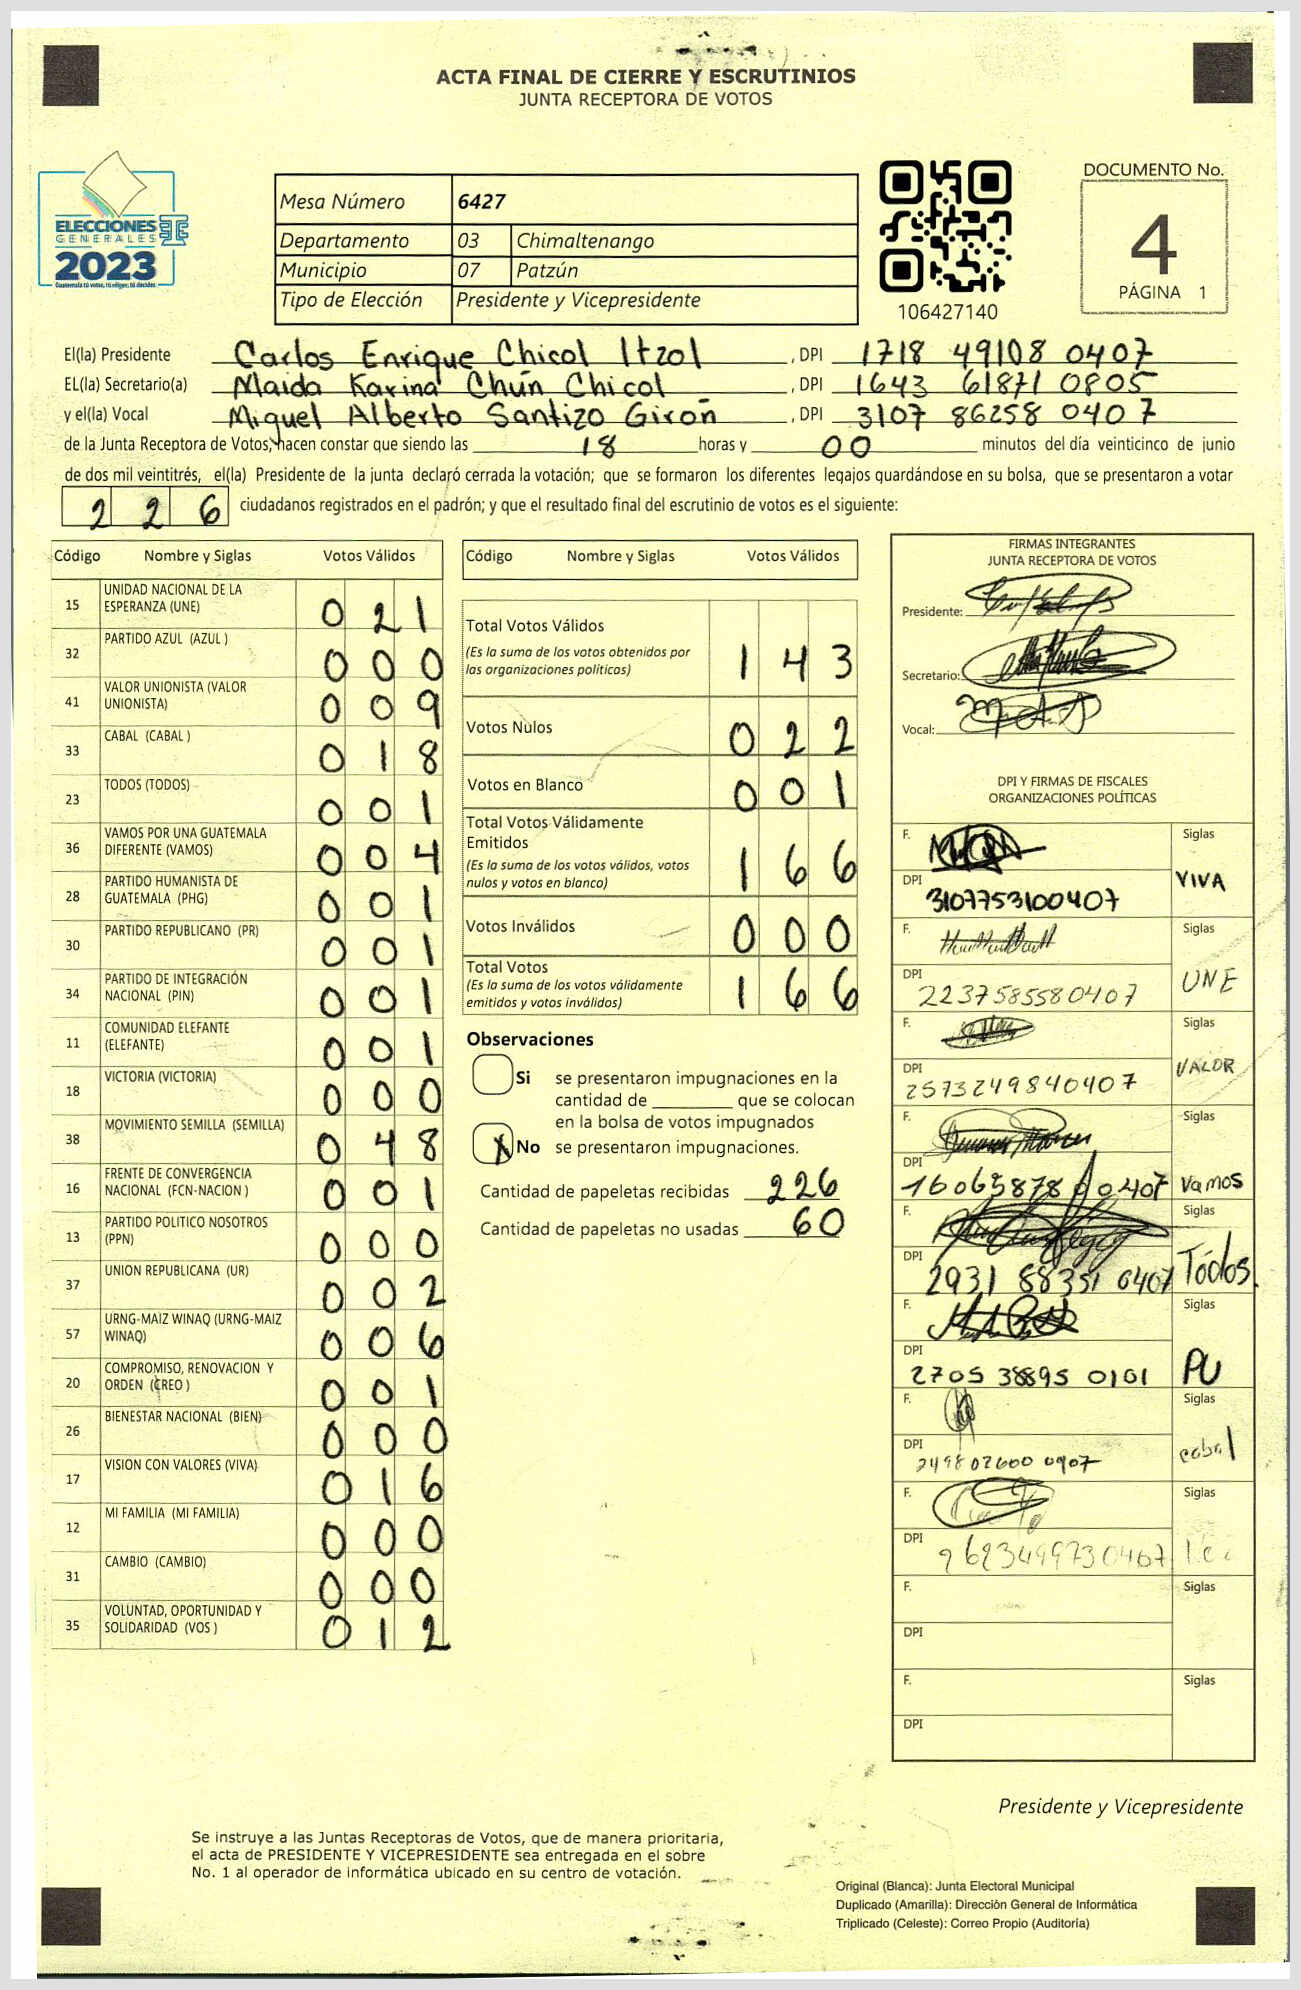 ACTA FINAL DE CIERRE Y ESCRUTINIOS
JUNTA RECEPTORA DE VOTOS
ELECCIONES
GENERALES
2023
Guatemala tú votas, tú eliges, tú decides
Mesa Número 6427
Departamento 03 Chimaltenango
Municipio 07 Patzún
Tipo de Elección Presidente y Vicepresidente
106427140
DOCUMENTO No.
4
PÁGINA 1
El(la) Presidente Carlos Enrique Chicol Itzol , DPI 1718 49108 0407
EL(la) Secretario(a) Maida Karina Chún Chicol , DPI 1643 61871 0805
y el(la) Vocal Miguel Alberto Santizo Girón , DPI 3107 86258 0407
de la Junta Receptora de Votos, hacen constar que siendo las 18 horas y 00 minutos del día veinticinco de junio
de dos mil veintitrés, el(la) Presidente de la junta declaró cerrada la votación; que se formaron los diferentes legajos guardándose en su bolsa, que se presentaron a votar
226 ciudadanos registrados en el padrón; y que el resultado final del escrutinio de votos es el siguiente:
Código Nombre y Siglas Votos Válidos
15 UNIDAD NACIONAL DE LA ESPERANZA (UNE) 021
32 PARTIDO AZUL (AZUL ) 000
41 VALOR UNIONISTA (VALOR UNIONISTA) 009
33 CABAL (CABAL ) 018
23 TODOS (TODOS) 001
36 VAMOS POR UNA GUATEMALA DIFERENTE (VAMOS) 004
28 PARTIDO HUMANISTA DE GUATEMALA (PHG) 001
30 PARTIDO REPUBLICANO (PR) 001
34 PARTIDO DE INTEGRACIÓN NACIONAL (PIN) 001
11 COMUNIDAD ELEFANTE (ELEFANTE) 001
18 VICTORIA (VICTORIA) 000
38 MOVIMIENTO SEMILLA (SEMILLA) 048
16 FRENTE DE CONVERGENCIA NACIONAL (FCN-NACION ) 001
13 PARTIDO POLITICO NOSOTROS (PPN) 000
37 UNION REPUBLICANA (UR) 002
57 URNG-MAIZ WINAQ (URNG-MAIZ WINAQ) 006
20 COMPROMISO, RENOVACION Y ORDEN (CREO ) 001
26 BIENESTAR NACIONAL (BIEN) 000
17 VISION CON VALORES (VIVA) 016
12 MI FAMILIA (MI FAMILIA) 000
31 CAMBIO (CAMBIO) 000
35 VOLUNTAD, OPORTUNIDAD Y SOLIDARIDAD (VOS ) 012
Código Nombre y Siglas Votos Válidos
Total Votos Válidos 143
(Es la suma de los votos obtenidos por
las organizaciones políticas)
Votos Nulos 022
Votos en Blanco 001
Total Votos Válidamente
Emitidos 166
(Es la suma de los votos válidos, votos
nulos y votos en blanco)
Votos Inválidos 000
Total Votos 166
(Es la suma de los votos válidamente
emitidos y votos inválidos)
Observaciones
Si se presentaron impugnaciones en la
cantidad de ________ que se colocan
en la bolsa de votos impugnados
X No se presentaron impugnaciones.
Cantidad de papeletas recibidas 226
Cantidad de papeletas no usadas 60
FIRMAS INTEGRANTES
JUNTA RECEPTORA DE VOTOS
Presidente:
Secretario:
Vocal:
DPI Y FIRMAS DE FISCALES
ORGANIZACIONES POLÍTICAS
F. Siglas
DPI 3107753100407 VIVA
F. Siglas
DPI 2237585580407 UNE
F. Siglas
DPI 2573249840407 VALOR
F. Siglas
DPI Vamos
F. Siglas
DPI 2931 88351 0407 Todos.
F. Siglas
DPI 2705 38895 0101 PU
F. Siglas
DPI 2498 02600 0907 cabal
F. Siglas
DPI
F. Siglas
DPI
F. Siglas
DPI
Presidente y Vicepresidente
Se instruye a las Juntas Receptoras de Votos, que de manera prioritaria,
el acta de PRESIDENTE Y VICEPRESIDENTE sea entregada en el sobre
No. 1 al operador de informática ubicado en su centro de votación.
Original (Blanca): Junta Electoral Municipal
Duplicado (Amarilla): Dirección General de Informática
Triplicado (Celeste): Correo Propio (Auditoría)